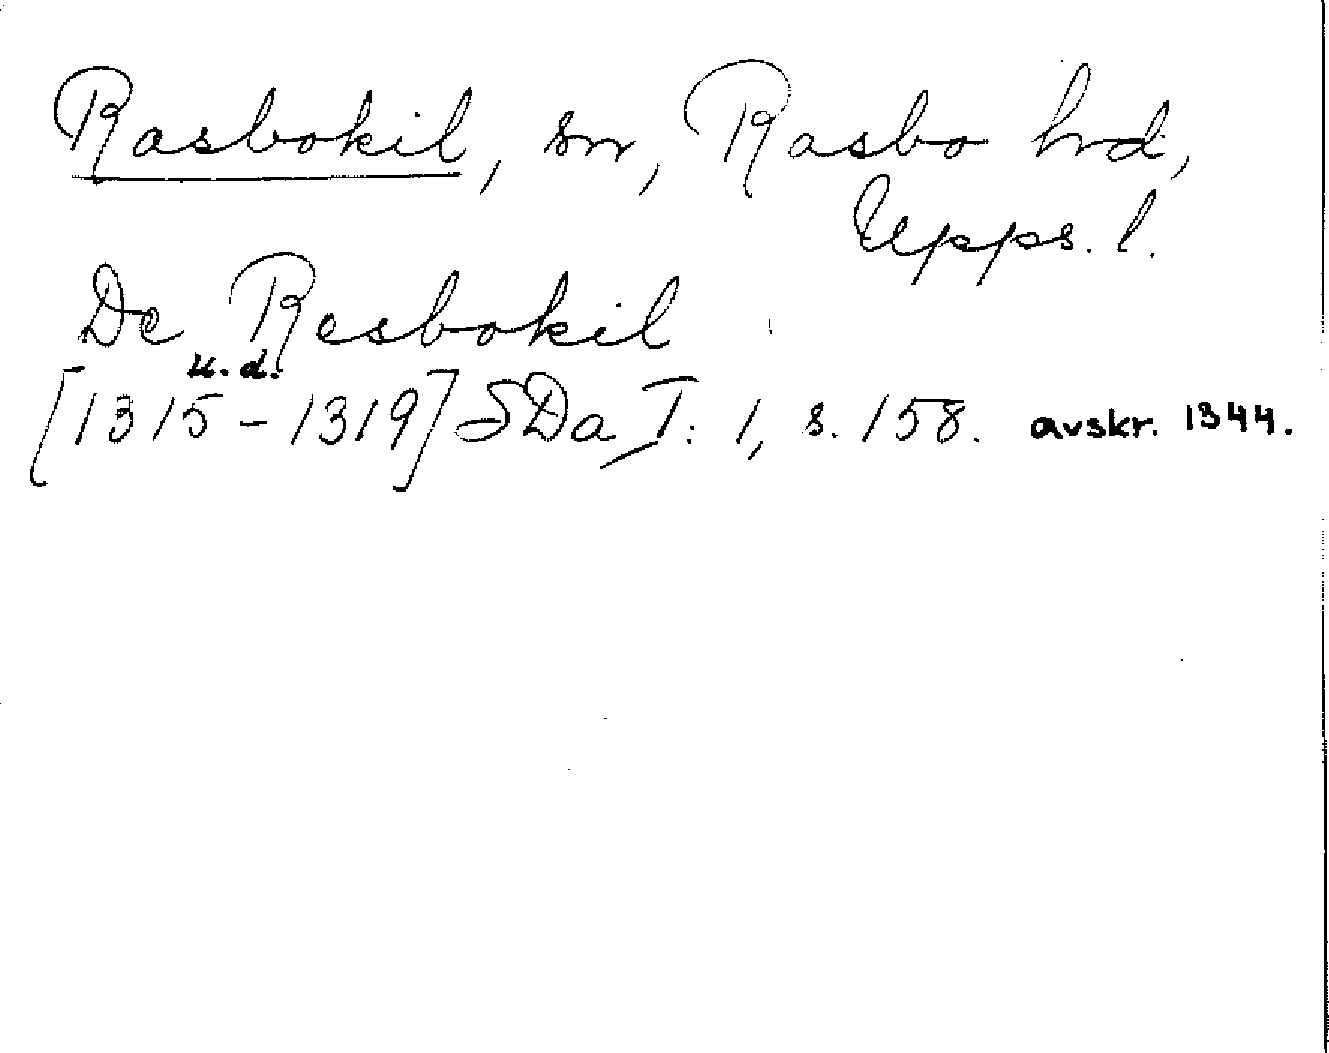 Rasbokil, sn, Rasbo hd,
Upps. l.
De Resbokil
u. d.
[1315-1319] SDa I: 1, s. 158. avskr. 1344.